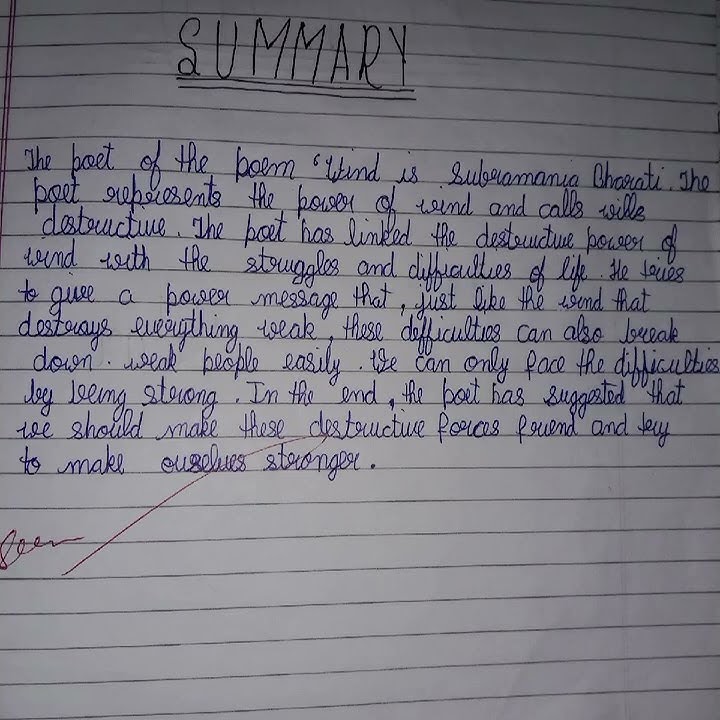 SUMMARY
The poet of the poem 'Wind is Subramania Bharati. The
poet represents the power of wind and calls wills
destructive. The poet has linked the destructive power of
wind with the struggles and difficulties of life. He tries
to give a power message that, just like the wind that
destroys everything weak, these difficulties can also break
down. weak people easily. We can only face the difficulties
by being strong. In the end, the poet has suggested that
we should make these destructive forces friend and try
to make ourselves stronger.
Seen